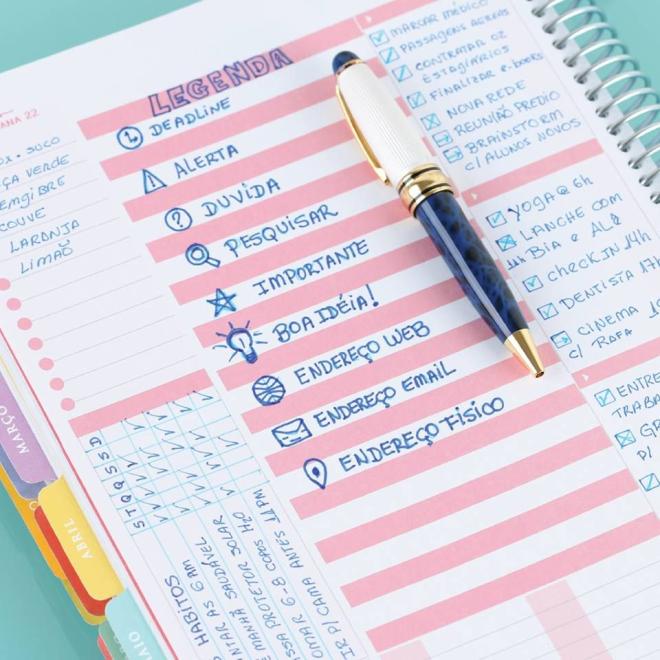 ANA 22
SUCO
ÇA VERDE
ENGIBRE
COUVE
LARANJA
LIMÃO
LEGENDA
DEADLINE
ALERTA
DUVIDA
PESQUISAR
IMPORTANTE
BOA IDÉIA!
ENDEREÇO WEB
ENDEREÇO EMAIL
ENDEREÇO FÍSICO
MARCAR MÉDICO
PASSAGENS AEREAS
CONTRATAR 02
ESTAGIÁRIOS
FINALIZAR E-BOOKS
NOVA REDE
REUNIÃO PREDIO
BRAINSTORM
C/ ALUNOS NOVOS
YOGA @ 6h
LANCHE COM
BIA e ALÊ
CHECK IN 14h
DENTISTA 17h
CINEMA
C/ RAFA
ENTRE
TRABA
P/
S T Q Q S S D
HABITOS
NTAR AS 6 AM
E MANHÃ SAUDÁVEL
SSA PROTETOR SOLAR
OMAR 6-8 COPOS H2O
IR P/ CAMA ANTES 11 PM
MARÇO
ABRIL
MAIO